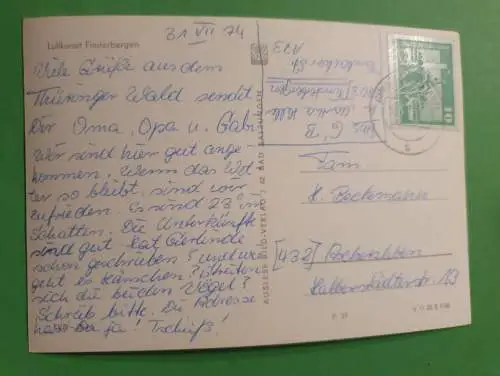 Luftkurort Finsterbergen
31 VII 74
Viele Grüße aus dem
Thüringer Wald sendet
Dir Oma, Opa u. Gabi
Wir sind hier gut ange-
kommen. Wenn das Wet-
ter so bleibt, sind wir
zufrieden. Es sind 23° im
Schatten. Die Unterkünfte
sind gut. Hat Gerlinde
schon geschrieben? und wie
geht es Hänschen? Streiten
sich die beiden Vögel?
Schreib bitte. Die Adresse
hast Du ja! Tschüß!
AUSLESE-BILD-VERLAG 62 BAD SALZUNGEN
Fam.
H. Beckmann
[432] Aschersleben
Halberstädterstr. 13